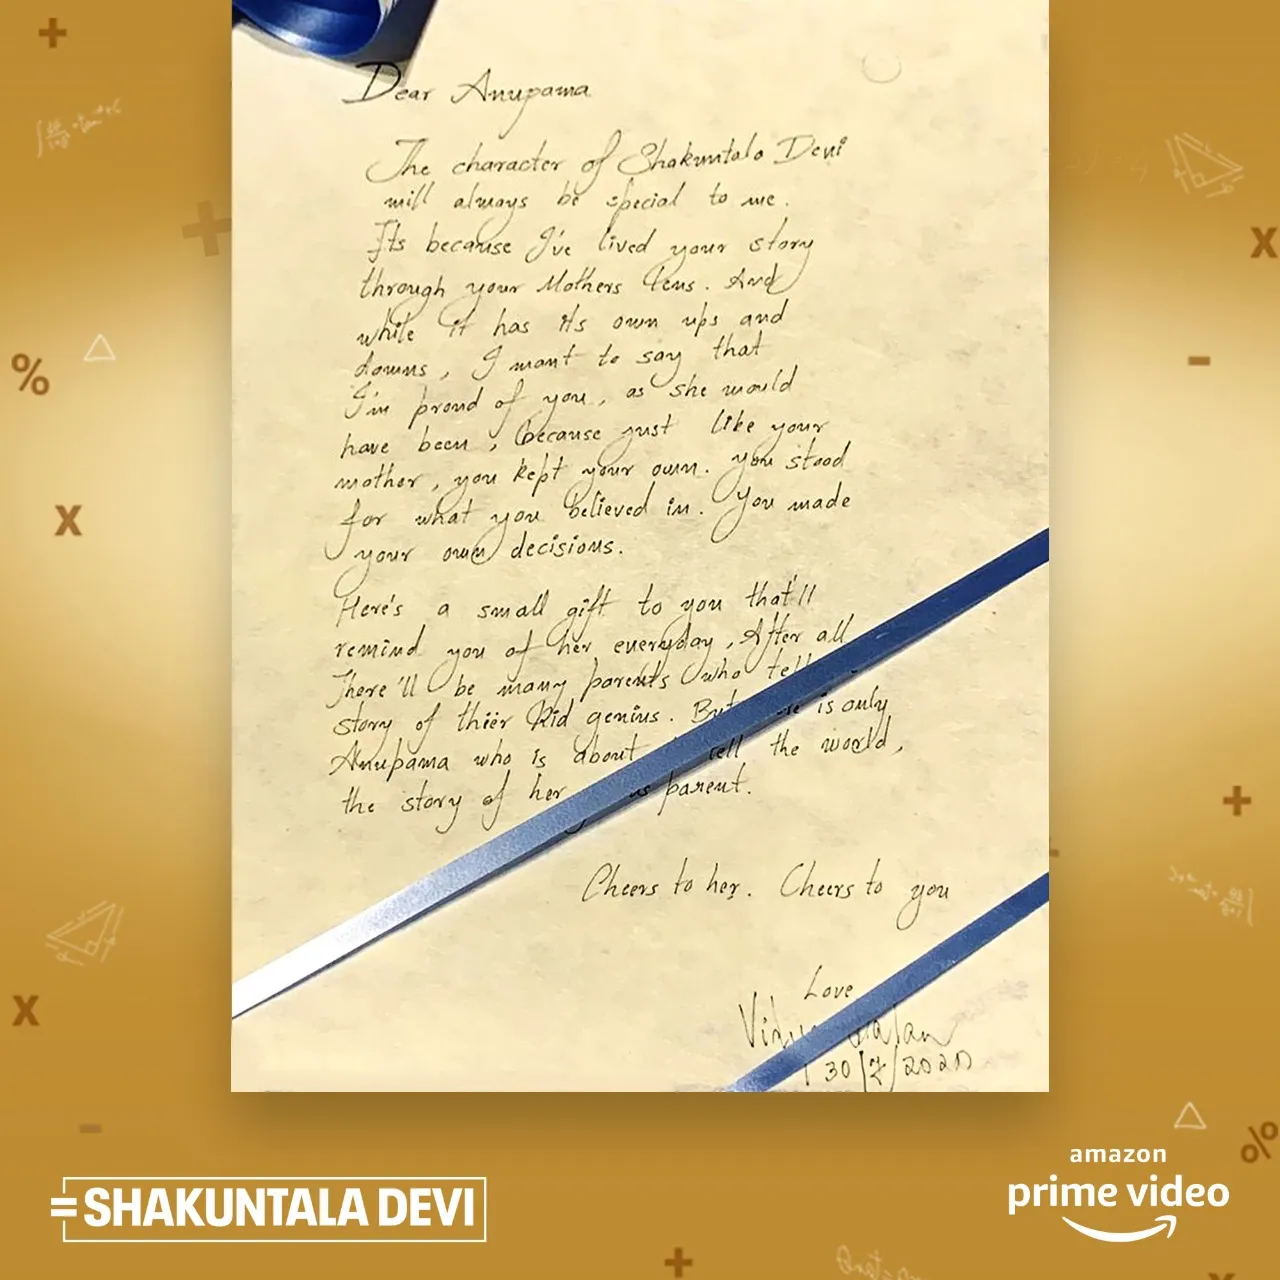 Dear Anupama
The character of Shakuntala Devi
will always be special to me.
Its because I've lived your story
through your Mothers lens. And
while it has its own ups and
downs, I want to say that
I'm proud of you, as she would
have been, because just like your
mother, you kept your own. You stood
for what you believed in. You made
your own decisions.
Here's a small gift to you that'll
remind you of her everyday, After all
There'll be many parents who tell
story of thier Kid genius. But is only
Anupama who is about tell the world,
the story of her parent.
Cheers to her. Cheers to you
Love
Vidya Balan
30/7/2020
=SHAKUNTALA DEVI
amazon
prime video